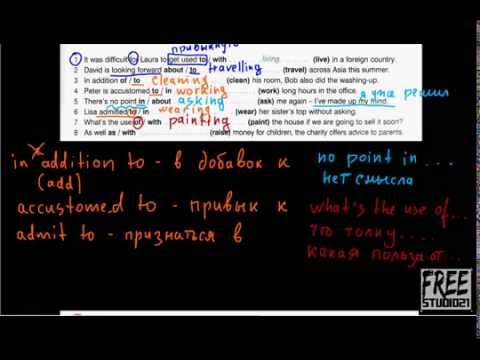 привыкнуть
1 It was difficult to Laura to get used to / with living (live) in a foreign country.
2 David is looking forward about / to travelling (travel) across Asia this summer.
3 In addition of / to cleaning (clean) his room, Bob also did the washing-up.
4 Peter is accustomed to / in working (work) long hours in the office.
я уже решил
5 There's no point in / about asking (ask) me again – I've made up my mind.
6 Lisa admitted to / in wearing (wear) her sister's top without asking.
7 What's the use of / with painting (paint) the house if we are going to sell it soon?
8 As well as / with (raise) money for children, the charity offers advice to parents.
in addition to - в добавок к
(add)
accustomed to - привык к
admit to - признаться в
no point in ...
нет смысла
what's the use of ...
что толку ....
какая польза от...
FREE
STUDIO21